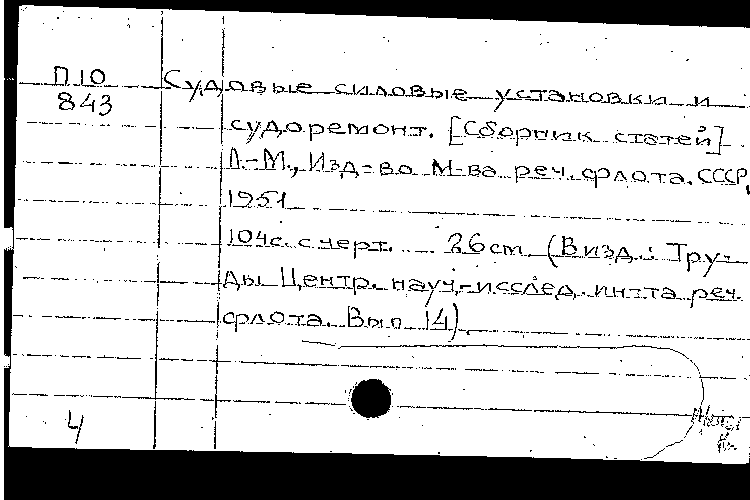 П10 Судовые силовые установки и
843 судоремонт. [Сборник статей]
Л.-М., Изд-во М-ва реч. флота СССР,
1951
104с. с черт. 26cm (В изд.: Тру-
ды Центр. науч.-исслед. ин-та реч.
флота. Вып. 14).
4